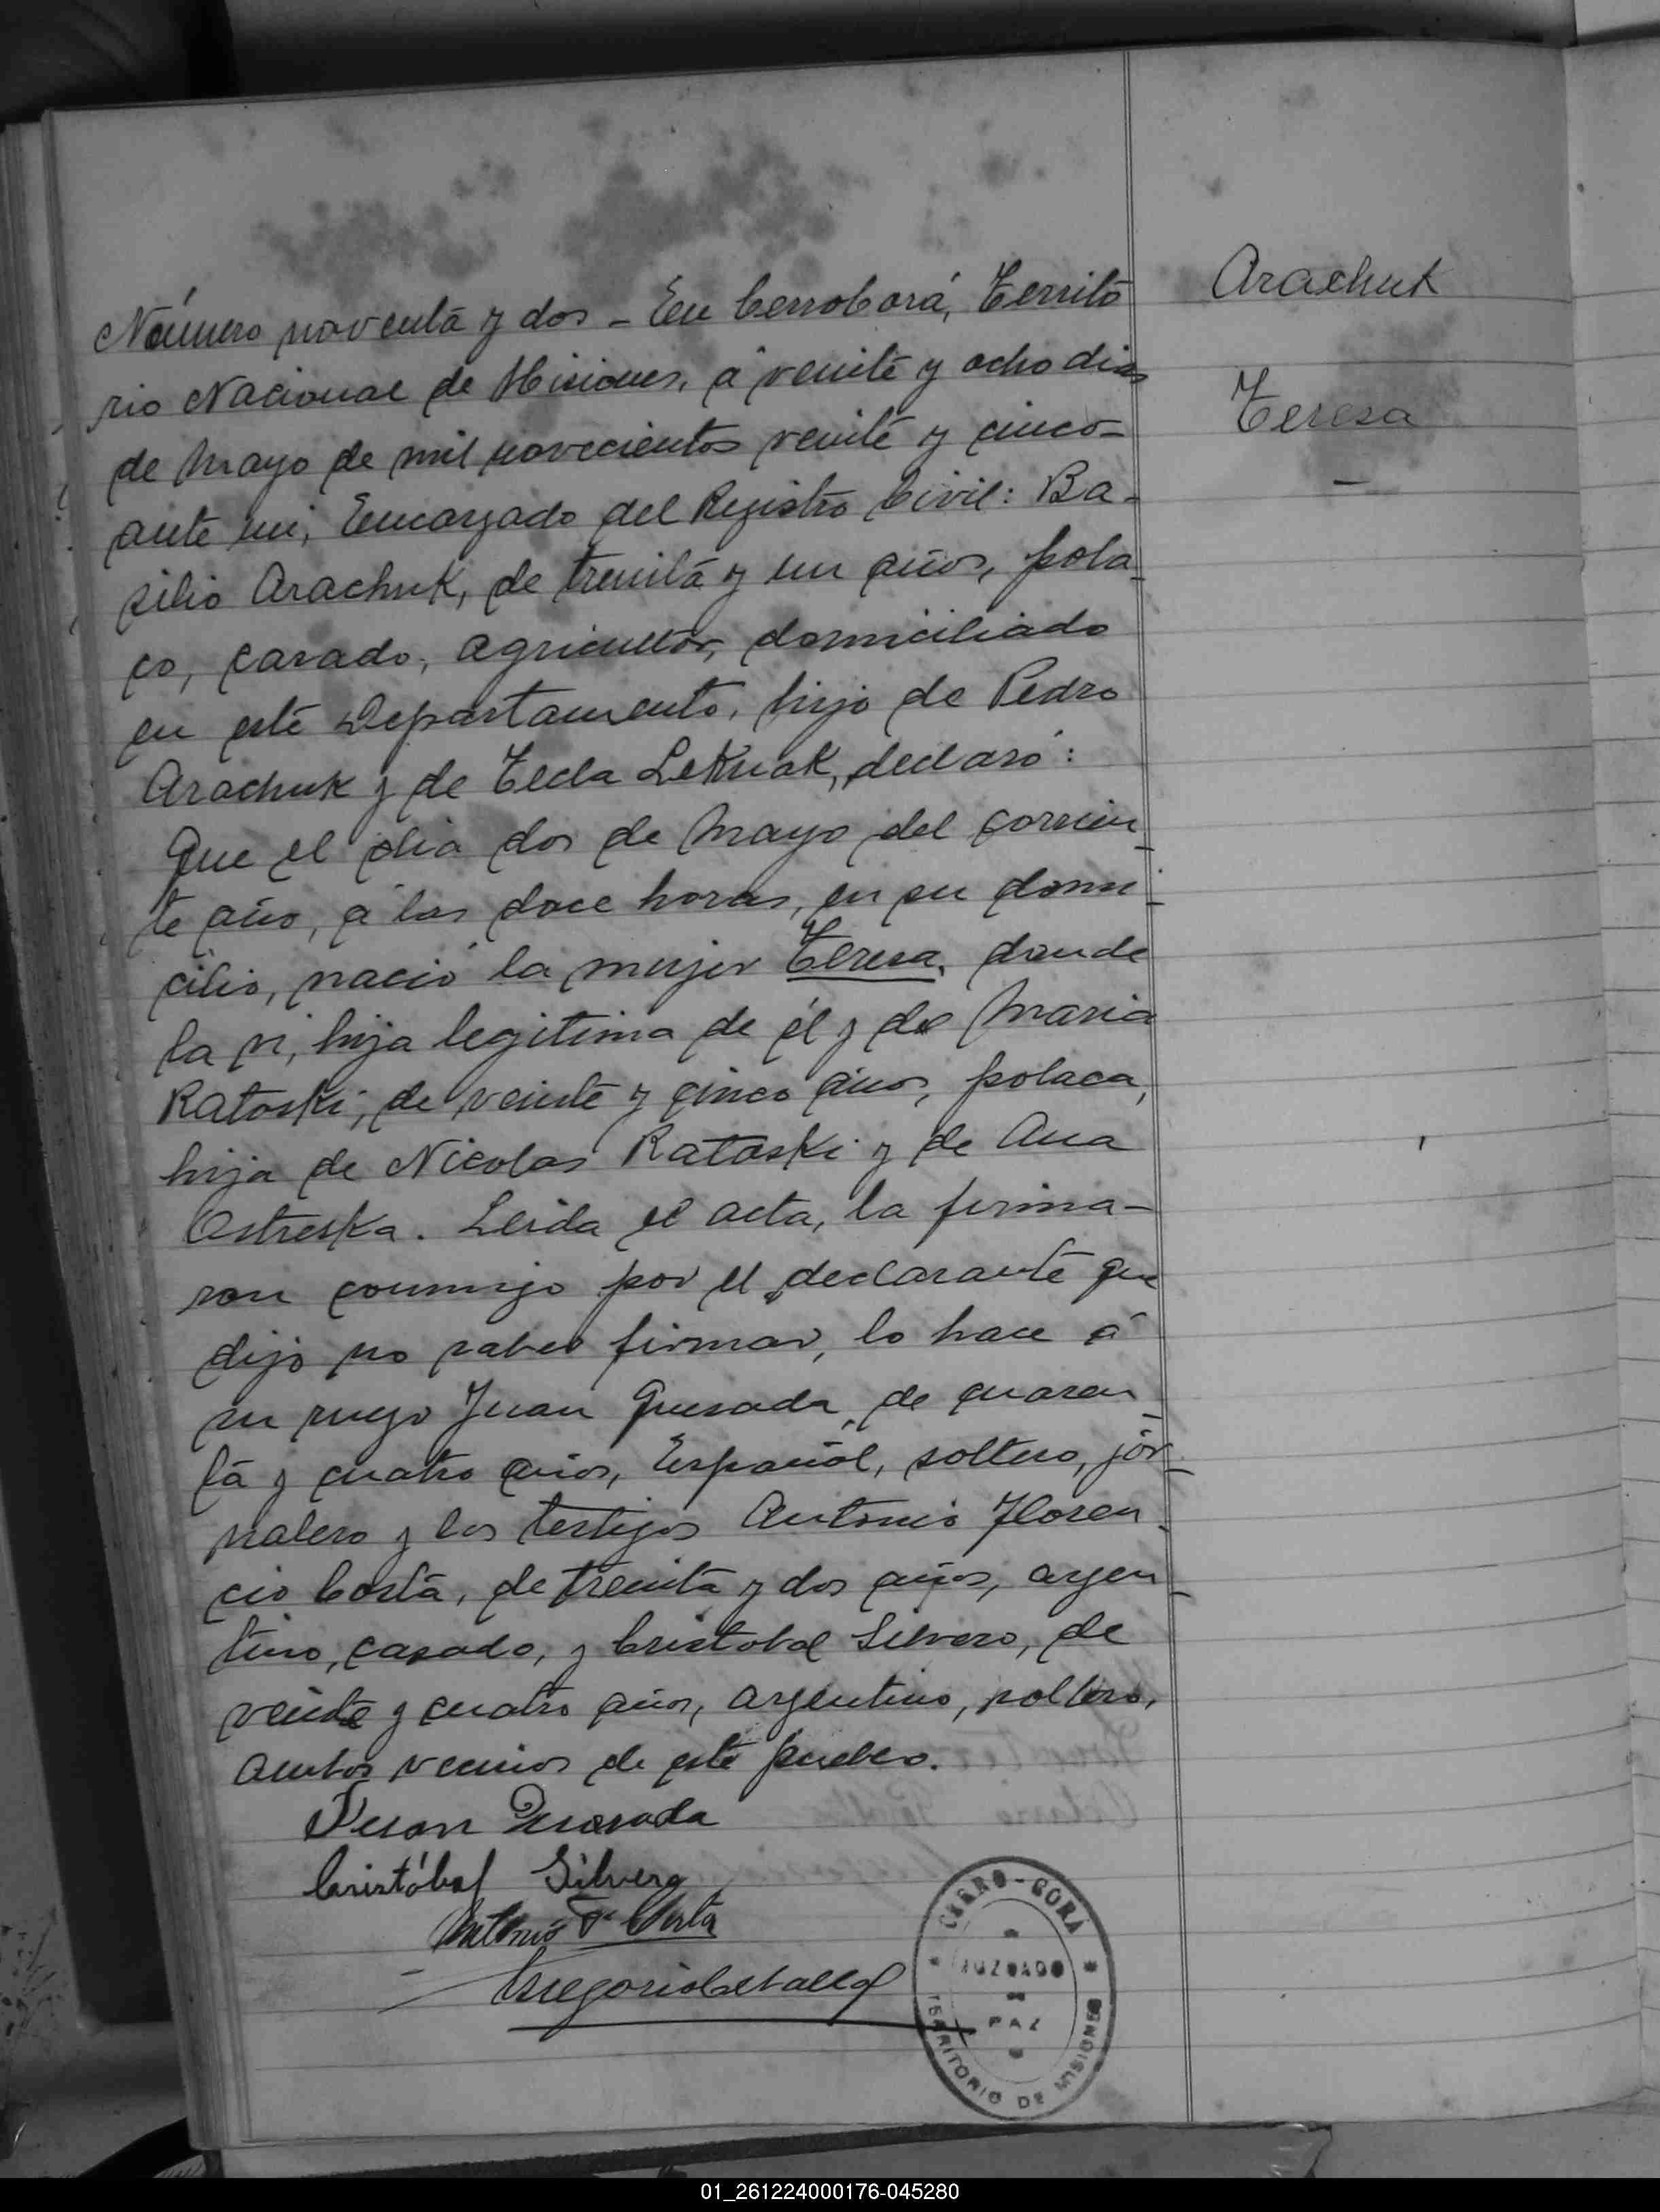 Número noventa y dos - En Cerrocorá, Territo
rio Nacional de Misiones, á veinte y ocho dias
de Mayo de mil novecientos veinte y cinco-
ante mi, Encargado del Registro Civil: Ba-
silio Arachuk, de treinta y un años, pola-
co, casado, agricultor, domiciliado
en este Departamento, hijo de Pedro
Arachuk y de Tecla Leknak, declaró:
Que el dia dos de Mayo del corrien-
te año, á las doce horas, en su domi-
cilio, nació la mujer Teresa, donde
la vi, hija legitima de él y de Maria
Ratoski, de veinte y cinco años, polaca,
hija de Nicolas Rataski y de Ana
Ostreska. Leida el acta, la firma-
ron conmigo por el declarante que
dijo no saber firmar, lo hace á
su ruego Juan Quesada, de cuaren-
ta y cuatro años, Español, soltero, jor-
nalero y los testigos Antonio Floren-
cio Costa, de treinta y dos años, argen-
tino, casado, y Cristobal Silvero, de
veinte y cuatro años, argentino, soltero,
ambos vecinos de este pueblo.
Juan Quesada
Cristóbal Silvero
Antonio F. Costa
CERRO-CORÁ
JUZGADO
PAZ
TERRITORIO DE MISIONES
Arachuk
Teresa
01_261224000176-045280